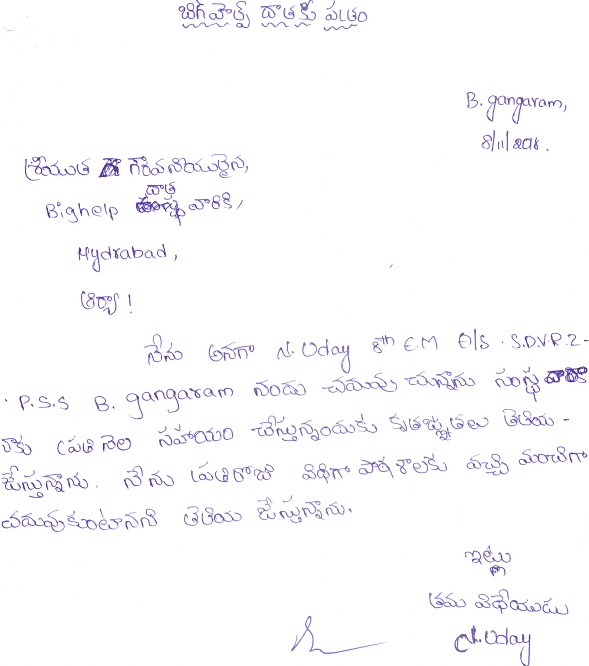 బిగ్ హెల్ప్ దాతకు పత్రం
B. gangaram,
8/11/2018.
శ్రీయుత గౌరవనీయులైన,
దాత
Bighelp వారికి,
Hydrabad,
ఆర్యా !
నేను అనగా N. Uday 8th E.M A/S . S.D.V.R.Z-
P.S.S B. gangaram నందు చదువు చున్నాను సంస్థ
నాకు ప్రతి నెల సహాయం చేస్తున్నందుకు కృతజ్ఞతలు తెలియ -
జేస్తున్నాను. నేను ప్రతిరోజు విధిగా పాఠశాలకు వచ్చి మంచిగా
చదువుకుంటానని తెలియ జేస్తున్నాను.
ఇట్లు
తమ విధేయుడు
N. Uday